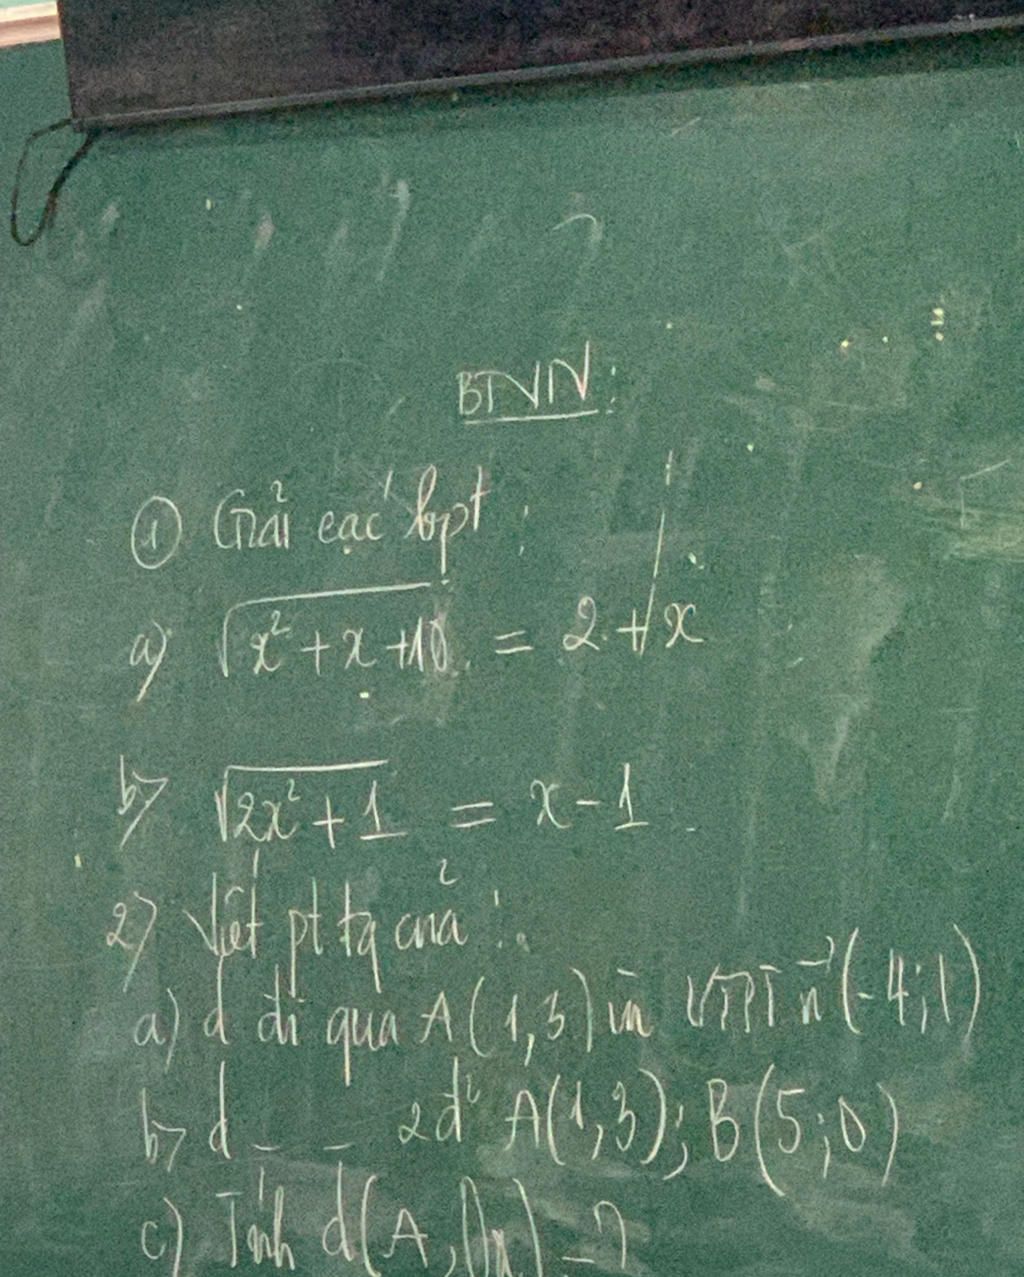 BTVN:
① Giải các bpt:
a) √(x² + x + 10) = 2 + x
b) √(2x² + 1) = x - 1
2) Viết pt tq của:
a) d đi qua A(1,3) có VTPT n⃗(-4;1)
b) d _ _ 2đ² A(1,3); B(5;0)
c) Tính d(A, Ox) = ?